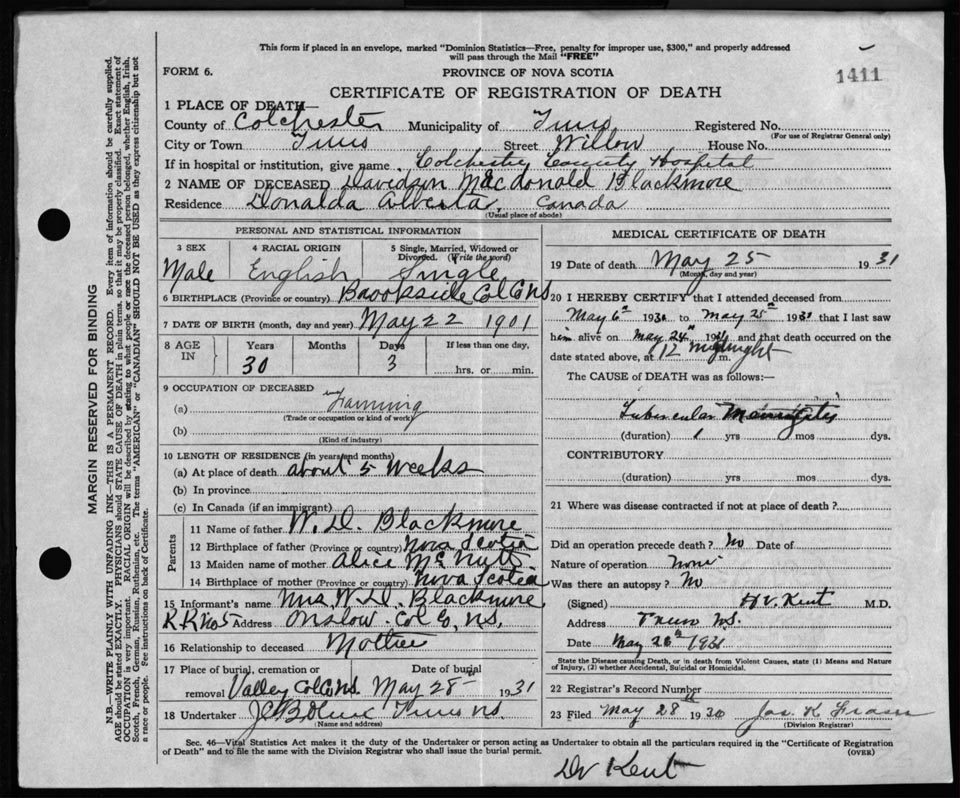 This form if placed in an envelope, marked "Dominion Statistics—Free, penalty for improper use, $300," and properly addressed
will pass through the Mail "FREE"
FORM 6.
PROVINCE OF NOVA SCOTIA
1411
CERTIFICATE OF REGISTRATION OF DEATH
1 PLACE OF DEATH—
County of Colchester Municipality of Truro Registered No.
(For use of Registrar General only)
City or Town Truro Street Willow House No.
If in hospital or institution, give name Colchester County Hospital
2 NAME OF DECEASED Davidson Macdonald Blackmore
Residence Donalda Alberta, Canada
(Usual place of abode)
PERSONAL AND STATISTICAL INFORMATION
3 SEX 4 RACIAL ORIGIN 5 Single, Married, Widowed or
Divorced. (Write the word)
Male English Single
6 BIRTHPLACE (Province or country) Brookside Col Co NS
7 DATE OF BIRTH (month, day and year) May 22 1901
8 AGE IN Years Months Days If less than one day,
30 3 hrs. or min.
9 OCCUPATION OF DECEASED
(a) Farming
(Trade or occupation or kind of work)
(b)
(Kind of industry)
10 LENGTH OF RESIDENCE (in years and months)
(a) At place of death about 5 weeks
(b) In province
(c) In Canada (if an immigrant)
Parents
11 Name of father W. D. Blackmore
12 Birthplace of father (Province or country) Nova Scotia
13 Maiden name of mother Alice McNutt
14 Birthplace of mother (Province or country) Nova Scotia
15 Informant's name Mrs W. D. Blackmore
R R No 5 Address Onslow Col Co, N.S.
16 Relationship to deceased Mother
17 Place of burial, cremation or Date of burial
removal Valley Col Co NS. May 28 1931
18 Undertaker Truro N.S.
(Name and address)
MEDICAL CERTIFICATE OF DEATH
19 Date of death May 25 1931
(Month, day and year)
20 I HEREBY CERTIFY that I attended deceased from
May 6th 193 to May 25th 1931 that I last saw
him alive on May 24th 19 and that death occurred on the
date stated above, at 12 Midnight m.
The CAUSE of DEATH was as follows:—
Tubercular Meningitis
(duration) 1 yrs mos dys.
CONTRIBUTORY
(duration) yrs mos dys.
21 Where was disease contracted if not at place of death?
Did an operation precede death? No Date of
Nature of operation None
Was there an autopsy? No
(Signed) H V. Kent M.D.
Address Truro N.S.
Date May 26th 1931
State the Disease causing Death, or in death from Violent Causes, state (1) Means and Nature
of Injury, (2) whether Accidental, Suicidal or Homicidal.
22 Registrar's Record Number
23 Filed May 28 1930 Jas. K. Fraser
(Division Registrar)
Sec. 46—Vital Statistics Act makes it the duty of the Undertaker or person acting as Undertaker to obtain all the particulars required in the "Certificate of Registration
of Death" and to file the same with the Division Registrar who shall issue the burial permit. (OVER)
Dr Kent
MARGIN RESERVED FOR BINDING
N.B.—WRITE PLAINLY WITH UNFADING INK—THIS IS A PERMANENT RECORD. Every item of information should be carefully supplied.
AGE should be stated EXACTLY. PHYSICIANS should STATE CAUSE OF DEATH in plain terms, so that it may be properly classified. Exact statement of
OCCUPATION is very important. RACIAL ORIGIN will be described by stating to what people or race the deceased person belonged, whether English, Irish,
Scotch, French, German, Russian, Ruthenian, etc. The terms "AMERICAN" or "CANADIAN" SHOULD NOT BE USED as they express citizenship but not
a race or people. Fee instructions on back of Certificate.